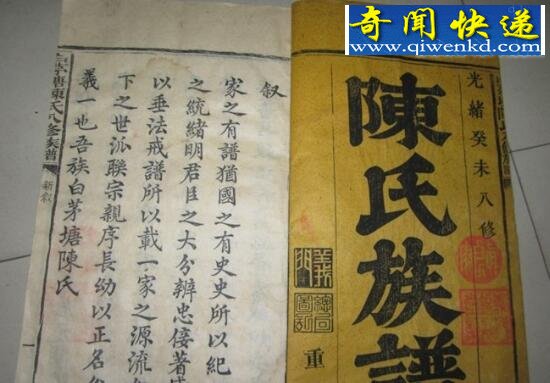 奇闻快递
www.qiwenkd.com
光緒癸未八修
陳氏族譜
義門
重
叙
家之有譜猶國之有史史所以紀
之統緒明君臣之大分辨忠佞著
以垂法戒譜所以載一家之源流
下之世派聯宗親序長幼以正名
義一也吾族白茅塘陳氏
茅塘陳氏八修族譜
新叙